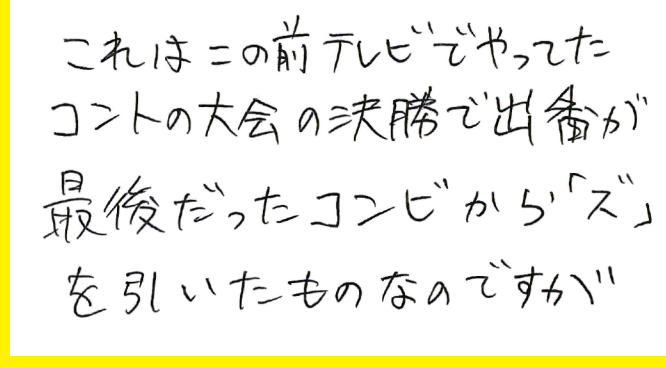 これはこの前テレビでやってた
コントの大会の決勝で出番が
最後だったコンビから「ズ」
を引いたものなのですが